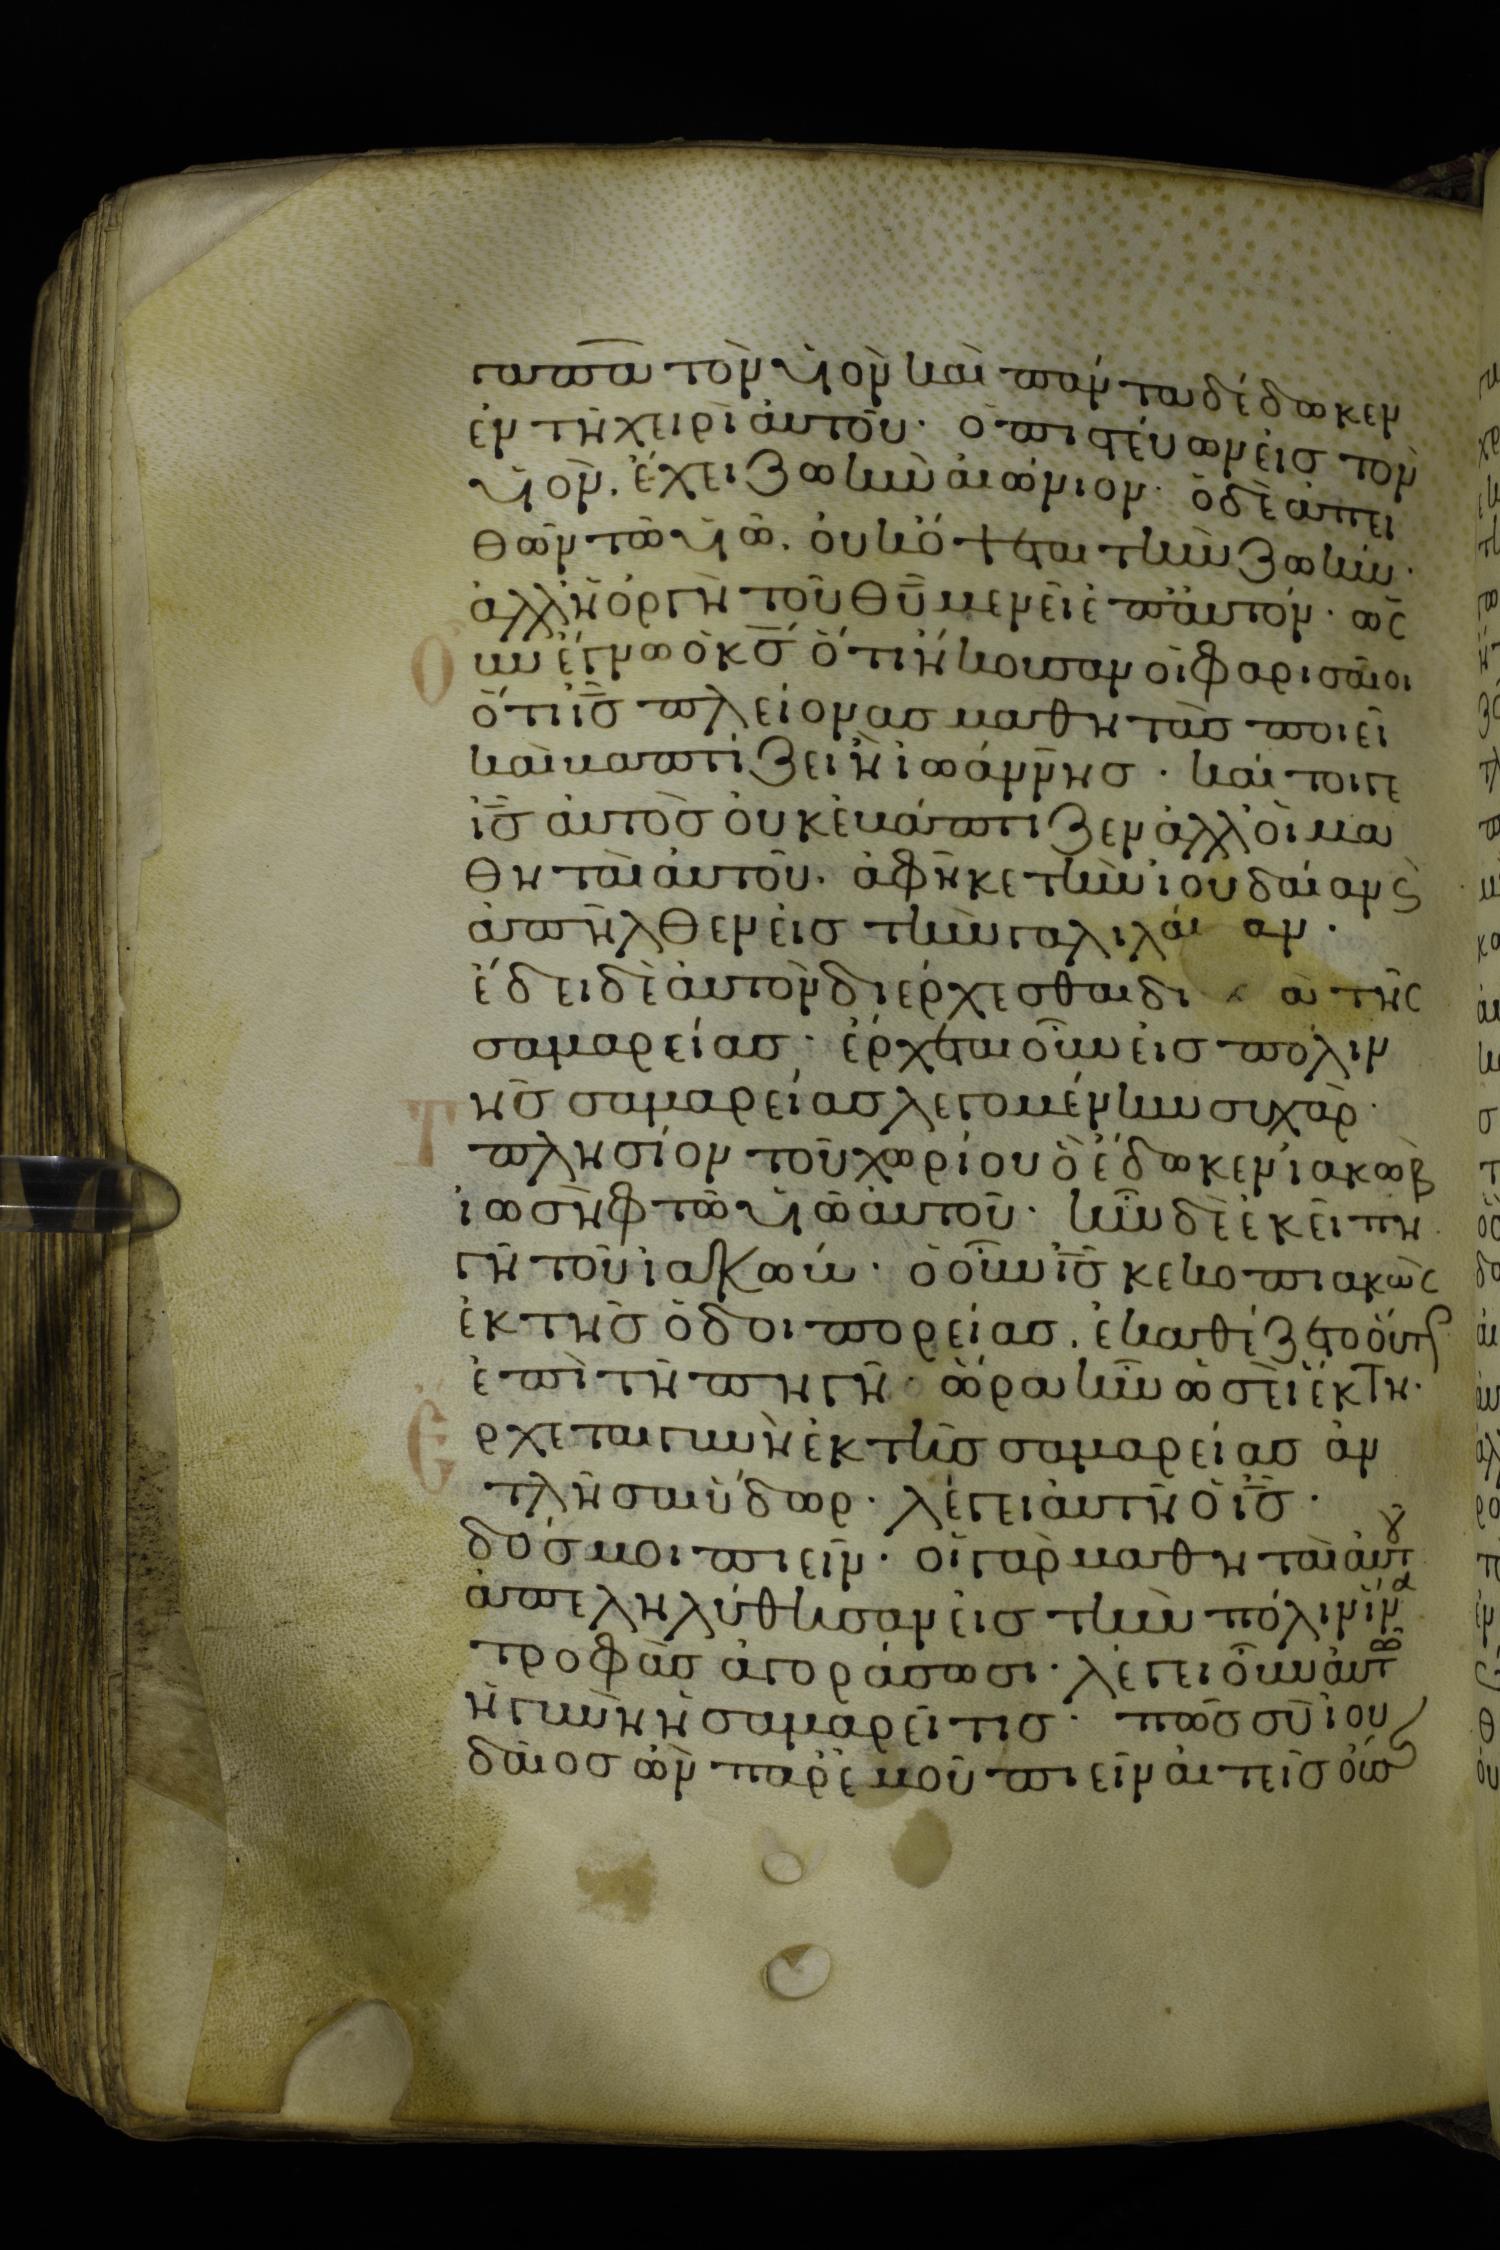 γαπᾶ τὸν υἱὸν καὶ πάντα δέδωκεν
ἐν τῆ χειρὶ ἀυτοῦ· ὁ πιστέυων ἐισ τὸν
υἱὸν. ἔχει ζωὴν ἀιώνιον· ὁ δὲ ἀπει
θῶν τῶ υἱῶ. ὀυκ ὄψεται τὴν ζωήν·
ἀλλ ἡ ὀργὴ τοῦ θῡ μενεῖ ἐπ ἀυτόν· ὡς
ουν ἔγνω ὁ κ̅σ̅ ὅτι ἤκουσαν ὁι φαρισᾶιοι
ὅτι ι̅σ̅ πλείονασ μαθητὰσ ποιεῖ
καὶ βαπτίζει ἢ ἰωάννησ · κάι τοιγε
ι̅σ̅ ἀυτὸσ ὀυκ ἐβάπτιζεν ἀλλ ὁι μα
θηταὶ ἀυτοῦ· ἀφῆκε τὴν ἰουδαίαν ϛ
ἀπῆλθεν ἐισ τὴν γαλιλάιαν ·
ἔδει δὲ ἀυτὸν διέρχεσθαι διὰ τῆς
σαμαρείασ · ἔρχεται οὖν ἐισ πόλιν
τῆσ σαμαρείασ λεγομένην συχὰρ·
πλησίον τοῦ χωρίου ὃ ἔδωκεν ἰακὼβ
ἰωσὴφ τῶ υἱῶ ἀυτοῦ· ἦν δὲ ἐκεῖ πη
γὴ τοῦ ἰακώβ · ὁ οὖν ι̅σ̅ κεκοπιακὼς
ἐκ τῆσ ὁδοιπορείασ. ἐκαθέζετο ὅυτως
ἐπὶ τῆ πηγῆ · ὥρα ἦν ὡσεὶ ἕκτη·
Ερχεται γυνὴ ἐκ τῆσ σαμαρείασ ἀν
τλῆσαι ὕδωρ· λέγει ἀυτῆ ὁ ι̅σ̅ ·
δόσ μοι πιεῖν · ὁι γὰρ μαθηταὶ ἀυτοῦ
ἀπεληλύθησαν ἐισ τὴν πόλιν ἵνα
τροφὰσ ἀγοράσωσι· λέγει οὖν ἀυτῶ
ἡ γυνὴ ἡ σαμαρεῖτισ · πῶσ σὺ ἰου
δᾶιοσ ὢν παρ ἐμοῦ πιεῖν ἀιτεῖσ